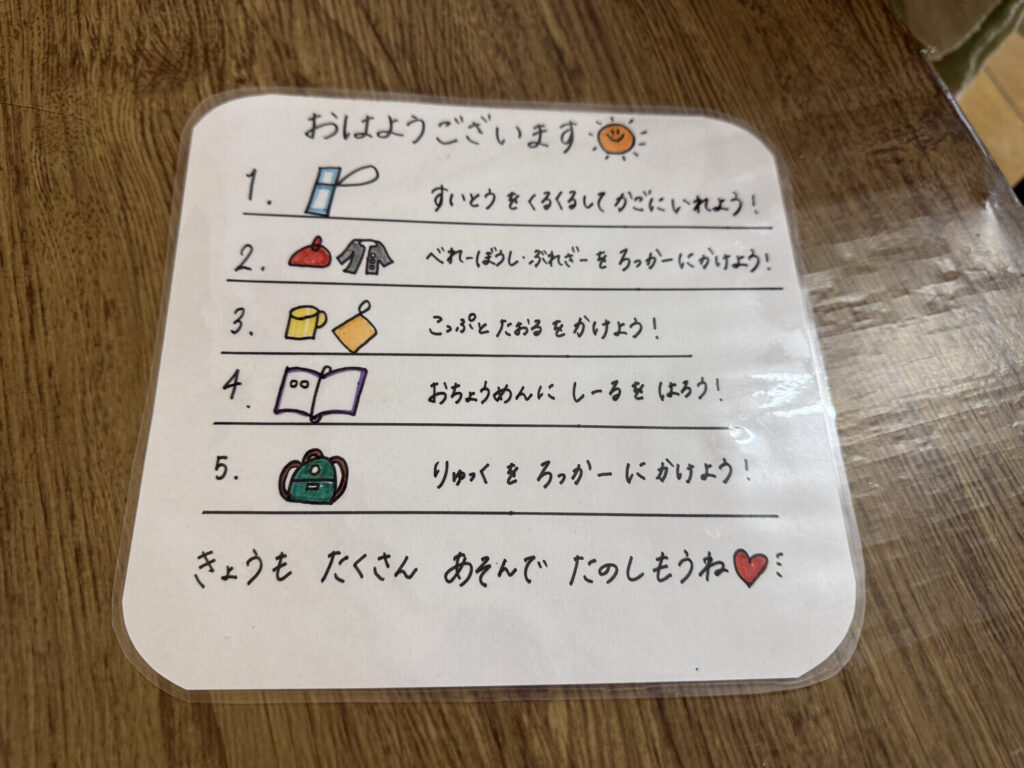 おはようございます
1. すいとうをくるくるしてかごにいれよう!
2. べれーぼうし・ぶれざーをろっかーにかけよう!
3. こっぷとたおるをかけよう!
4. おちょうめんにしーるをはろう!
5. りゅっくをろっかーにかけよう!
きょうも たくさん あそんで たのしもうね